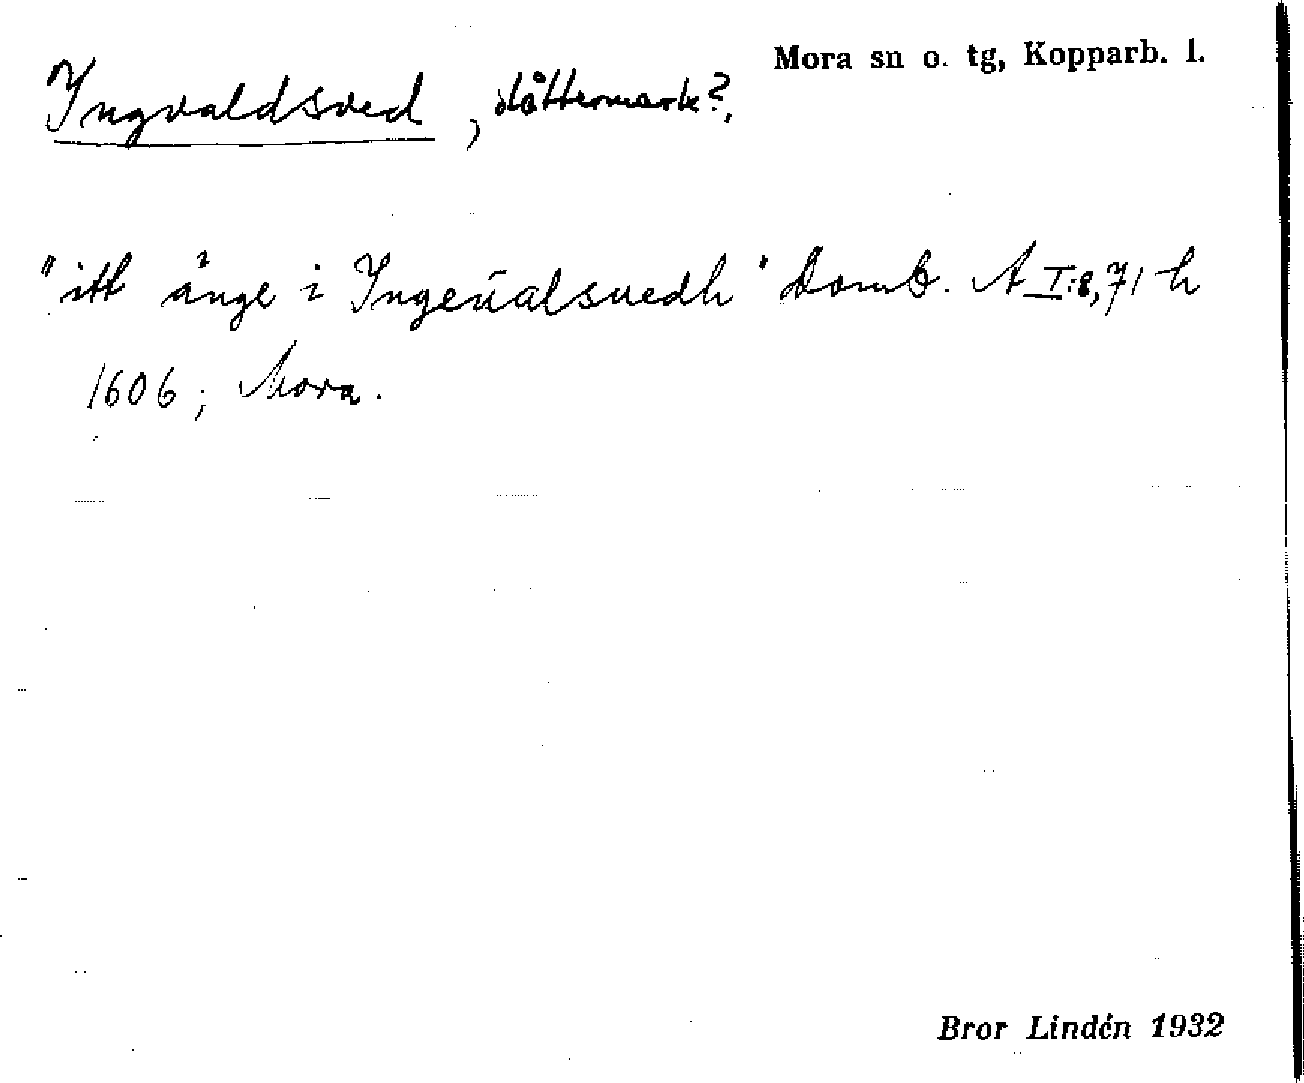 Mora sn o. tg, Kopparb. l.
Ingvaldsved, slåttermark?,
"itt änge i Ingeualsuedh" Domb. A I:8, 71 h
1606; Mora.
Bror Lindén 1932